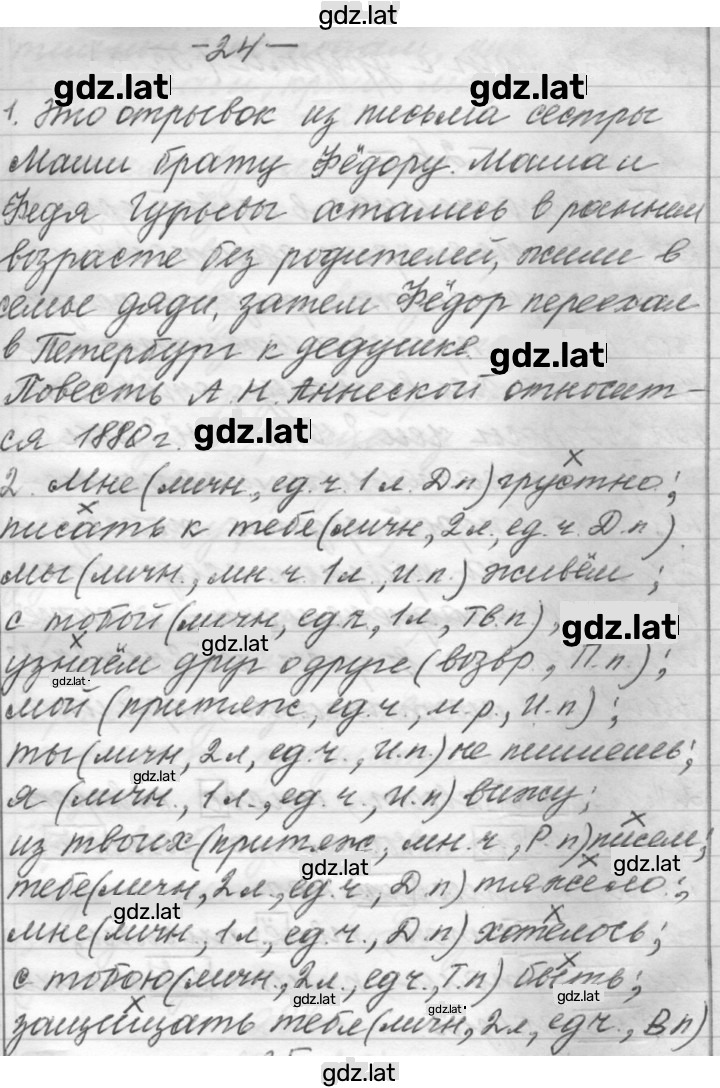 gdz.lat
-24-
gdz.lat gdz.lat
1. Это отрывок из письма сестры
Маши брату Фёдору. Маша и
Федя Гурьевы остались в раннем
возрасте без родителей, жили в
семье дяди, затем Фёдор переехал
в Петербург к дедушке. gdz.lat
Повесть А. Н. Аннеской относит-
ся 1880г. gdz.lat
2. Мне (личн, ед.ч. 1 л. Д.п) грустно;
писать к тебе (личн, 2л, ед.ч. Д.п.)
мы (личн., мн.ч 1л., И.п.) живём;
с тобой (личн, ед.ч, 1л., Тв.п), gdz.lat
gdz.lat
узнаём друг о друге (возвр., П.п.);
gdz.lat
мой (притяж., ед.ч., м.р., И.п);
ты (личн, 2л, ед.ч., И.п.) не пишешь;
gdz.lat
я (личн., 1л., ед.ч., И.п) вижу;
из твоих (притяж, мн.ч., Р.п) писем;
gdz.lat gdz.lat
тебе (личн, 2л., ед.ч., Д.п) тяжело.;
gdz.lat
мне (личн, 1л, ед.ч., Д.п) хотелось;
с тобою (личн., 2л., ед.ч., Т.п) быть;
gdz.lat gdz.lat gdz.lat
защищать тебя (личн, 2л, ед.ч., В.п)
gdz.lat